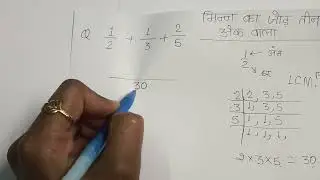 भिन्न का जोड़ तीन
अंक वाला
Q 1/2 + 1/3 + 2/5
30
1/2 अंश
हर
LCM
2 | 2, 3, 5
3 | 1, 3, 5
5 | 1, 1, 5
1, 1, 1,
2×3×5 = 30